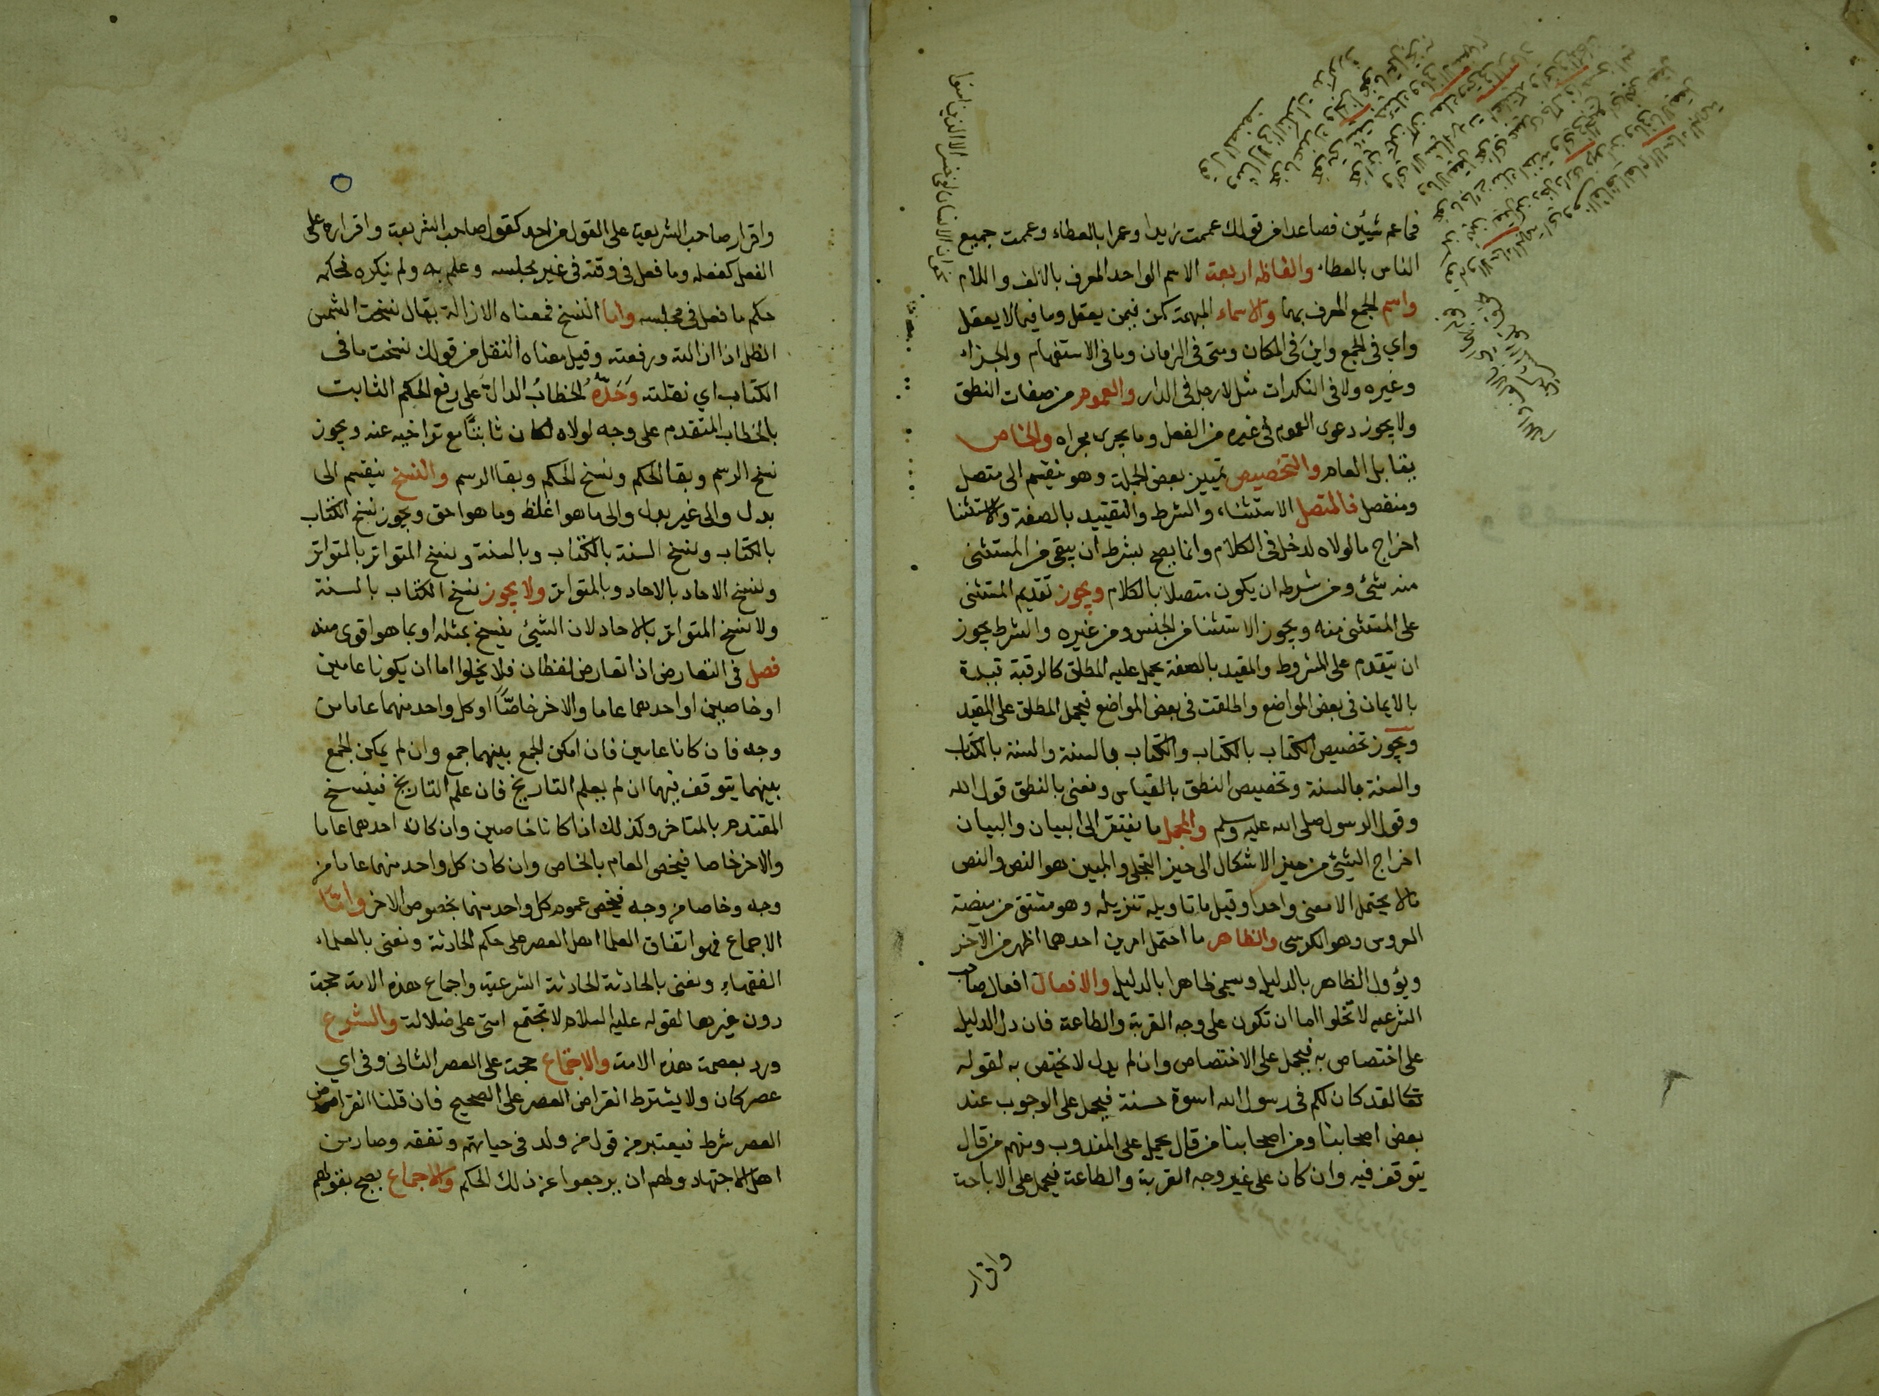 فما عم شيئين فصاعدا من قولك عممت زيدا وعمرا بالعطاء وعممت جميع
الناس بالعطاء والفاظه اربعة الاسم الواحد المعرف بالالف واللام
واسم الجمع المعرف بهما والاسماء المبهمة كمن فيمن يعقل وما فيما لا يعقل
واي في الجمع واين في المكان ومتى في الزمان وما في الاستفهام والجزاء
وغيره ولا في النكرات مثل لا رجل في الدار والعموم من صفات النطق
ولا يجوز دعوى العموم في غيره من الفعل وما يجرى مجراه والخاص
يقابل العام والتخصيص تمييز بعض الجملة وهو ينقسم الى متصل
ومنفصل فالمتصل الاستثناء والشرط والتقييد بالصفة والاستثنا
اخراج ما لولاه لدخل في الكلام وانما يصح بشرط ان يبقى من المستثنى
منه شئ ومن شرطه ان يكون متصلا بالكلام ويجوز تقديم المستثنى
على المستثنى منه ويجوز الاستثنا من الجنس ومن غيره والشرط يجوز
ان يتقدم على المشروط والمقيد بالصفة يحمل عليه المطلق كالرقبة قيدة
بالايمان في بعض المواضع واطلقت في بعض المواضع فيحمل المطلق على المقيد
ويجوز تخصيص الكتاب بالكتاب والكتاب بالسنة والسنة بالكتاب
والسنة بالسنة وتخصيص النطق بالقياس ونعنى بالنطق قول الله
وقول الرسول صلى الله عليه وسلم والمجمل ما يفتقر الى البيان والبيان
اخراج الشئ من حيز الاشكال الى حيز التجلى والمبين هو النص والنص
مالا يحتمل الا معنى واحدا وقيل ما تاويله تنزيله وهو مشتق من منصة
العروس وهو الكرسى والظاهر ما احتمل امرين احدهما اظهر من الآخر
ويؤول الظاهر بالدليل وسيمى ظاهرا بالدليل والافعال افعال صاحب
الشرعيه لا تخلوا اما ان تكون على وجه القربة والطاعة فان دل الدليل
على اختصاص به فيحمل على الاختصاص وان لم يدل لا يختص به لقوله
تعالى لقد كان لكم في رسول الله اسوة حسنة فيحمل على الوجوب عند
بعض اصحابنا ومن اصحابنا من قال يحمل على المندوب ومنهم من قال
يتوقف فيه وان كان على غير وجه القربة والطاعة فيحمل على الاباحة
واقرار
نحو ان الانسان لفى خسر الا الذين امنوا
واقرار صاحب الشريعة على القول من احد كقول صاحب الشريعة واقراره على
الفعل كفعله وما فعل في وقته في غير مجلسه وعلم به ولم ينكره فحكمه
حكم ما فعل في مجلسه واما النسخ فمعناه الازالة يقال نسخت الشمس
الظل اذا ازالته ورفعته وقيل معناه النقل من قولك نسخت ما في
الكتاب اي نقلته وحده الخطاب الدال على رفع الحكم الثابت
بالخطاب المتقدم على وجه لولاه لكان ثابتا مع تراخيه عنه ويجوز
نسخ الرسم وبقا الحكم ونسخ الحكم وبقا الرسم والنسخ ينقسم الى
بدل والى غير بدل والى ما هو اغلظ وما هو احق ويجوز نسخ الكتاب
بالكتاب ونسخ السنة بالكتاب وبالسنة ونسخ المتواتر بالمتواتر
ونسخ الاحاد بالاحاد وبالمتواتر ولا يجوز نسخ الكتاب بالسنة
ولا نسخ المتواتر بالاحاد لان الشئ ينسخ بمثله او بما هو اقوى منه
فصل في التعارض اذا تعارض لفظان فلا يخلوا اما ان يكونا عامين
او خاصين او احدهما عاما والاخر خاصا او كل واحد منهما عاما من
وجه فان كانا عامين فان امكن الجمع بينهما جمع وان لم يمكن الجمع
بينهما يتوقف فيهما ان لم يعلم التاريخ فان علم التاريخ فينسخ
المقتدم بالمتاخر وكذلك اذا كانا خاصين وان كان احدهما عاما
والاخر خاصا فيخص العام بالخاص وان كان كل واحد منهما عاما من
وجه وخاصا من وجه فيخص عموم كل واحد منهما بخصوص الاخر واما
الاجماع فهو اتفاق العلما اهل العصر على حكم الحادثة ونعنى بالعلماء
الفقهاء ونعنى بالحادثة الحادثة الشرعية واجماع هذه الامة حجة
دون غيرها لقوله عليه السلام لا تجتمع امتى على ضلالة والشرع
ورد بعصمة هذه الامة والاجماع حجة على العصر الثانى وفى اي
عصر كان ولا يشترط انقراض العصر على الصحيح فان قلنا انقراض
العصر شرط فيعتبر من قوله من ولد في حياتهم وتفقه وصار من
اهل الاجتهاد ولهم ان يرجعوا عن ذلك الحكم والاجماع يصح بقولهم